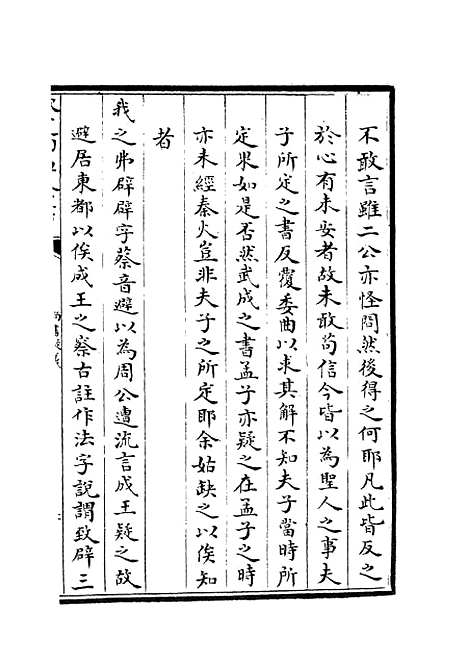 不敢言雖二公亦怪問然後得之何耶凡此皆反之
於心有未安者故未敢苟信今皆以為聖人之事夫
子所定之書反覆委曲以求其解不知夫子當時所
定果如是否然武成之書孟子亦疑之在孟子之時
亦未經秦火豈非夫子之所定耶余姑缺之以俟知
者
我之弗辟辟字蔡音避以為周公遭流言成王疑之故
避居東都以俟成王之察古註作法字說謂致辟三